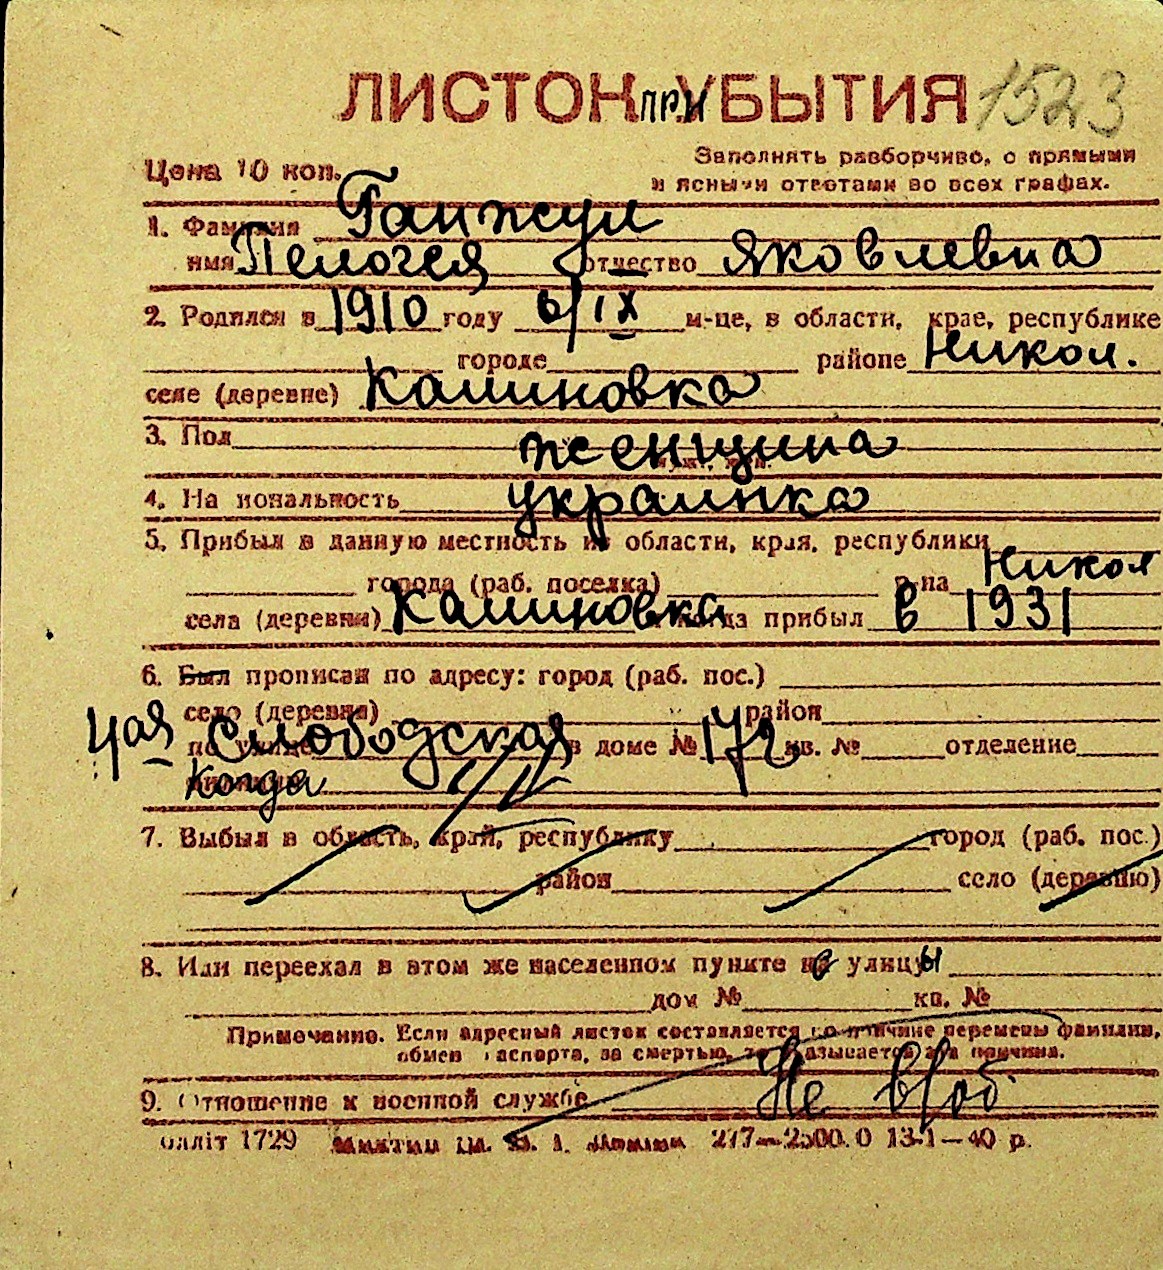 ЛИСТОК ПРИ УБЫТИЯ 1523
Цена 10 коп.
Заполнять разборчиво, с прямыми
и ясными ответами во всех графах.
1. Фамилия Ганжул
имя Пелогея отчество Яковлевна
2. Родился в 1910 году 6/IX м-це, в области, крае, республике
городе районе Никол.
селе (деревне) Калиновка
3. Пол женщина
4. Национальность украинка
5. Прибыл в данную местность из области, края, республики
города (раб. поселка) р-на Никол
села (деревни) Калиновка когда прибыл в 1931
6. Был прописан по адресу: город (раб. пос.)
село (деревня) район
4ая Слободская по улице в доме № 172 кв. № отделение
когда
7. Выбыл в область, край, республику город (раб. пос.)
район село (деревню)
8. Или переехал в этом же населенном пункте с улицы
дом № кв. №
Примечание. Если адресный листок составляется по причине перемены фамилии,
обмен паспорта, за смертью, то указывается эта причина.
9. Отношение к военной службе Не в/об
облліт 1729 277—2500.0 13-1—40 р.